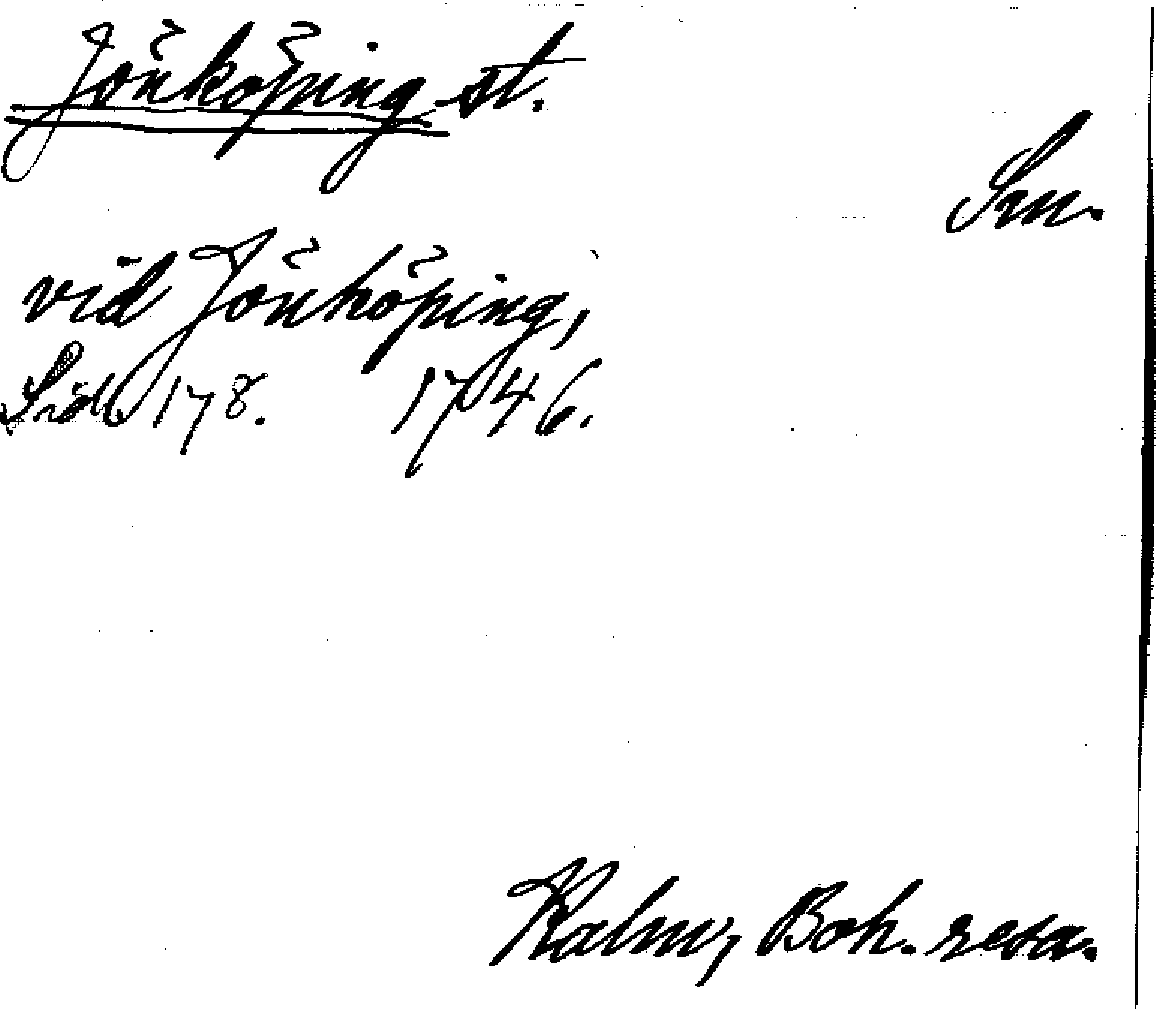 Jönköping st.
Sm.
vid Jönköping,
Sid. 178. 1746.
Kalm, Boh. resa.